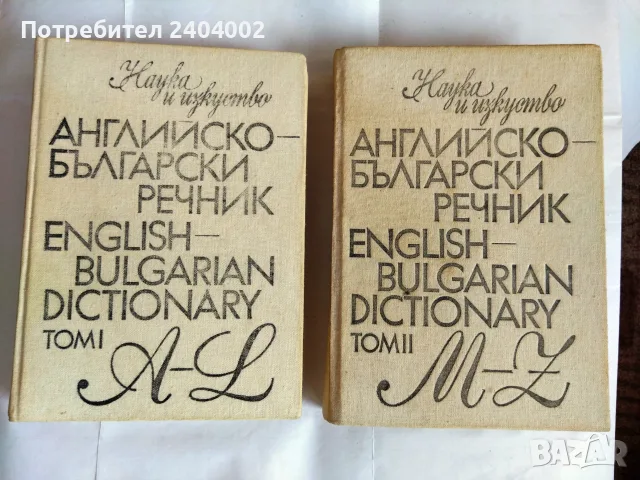 Потребител 2404002
Наука
и изкуство
АНГЛИЙСКО–
БЪЛГАРСКИ
РЕЧНИК
ENGLISH–
BULGARIAN
DICTIONARY
ТОМ I
A–L
Наука
и изкуство
АНГЛИЙСКО–
БЪЛГАРСКИ
РЕЧНИК
ENGLISH–
BULGARIAN
DICTIONARY
ТОМ II
M–Z
BAZAR